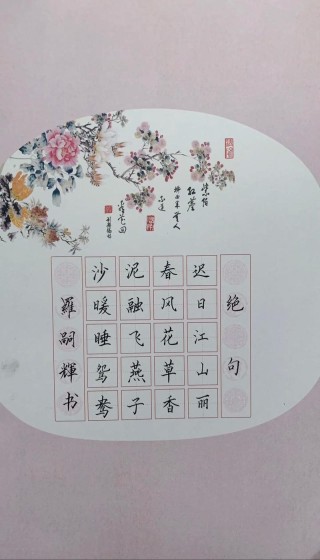 绝句
迟日江山丽
春风花草香
泥融飞燕子
沙暖睡鸳鸯
羅嗣輝书